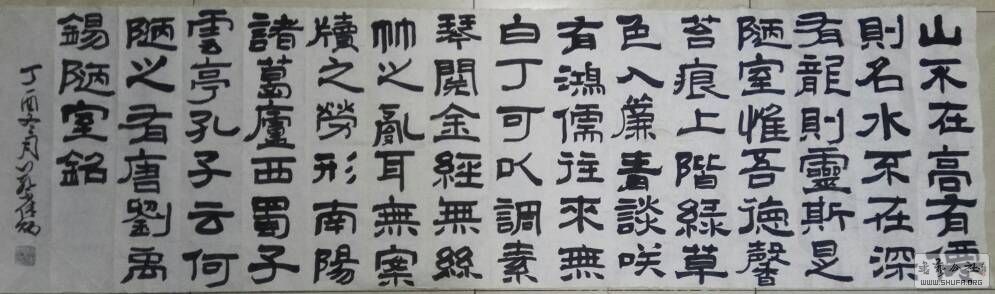 山不在高有僊
則名水不在深
有龍則靈斯是
陋室惟吾德馨
苔痕上階綠草
色入簾青談咲
有鴻儒往來無
白丁可以調素
琴閱金經無絲
竹之亂耳無案
牘之勞形南陽
諸葛廬西蜀子
雲亭孔子云何
陋之有唐劉禹
錫陋室銘
丁酉
WWW.SHUFA.ORG